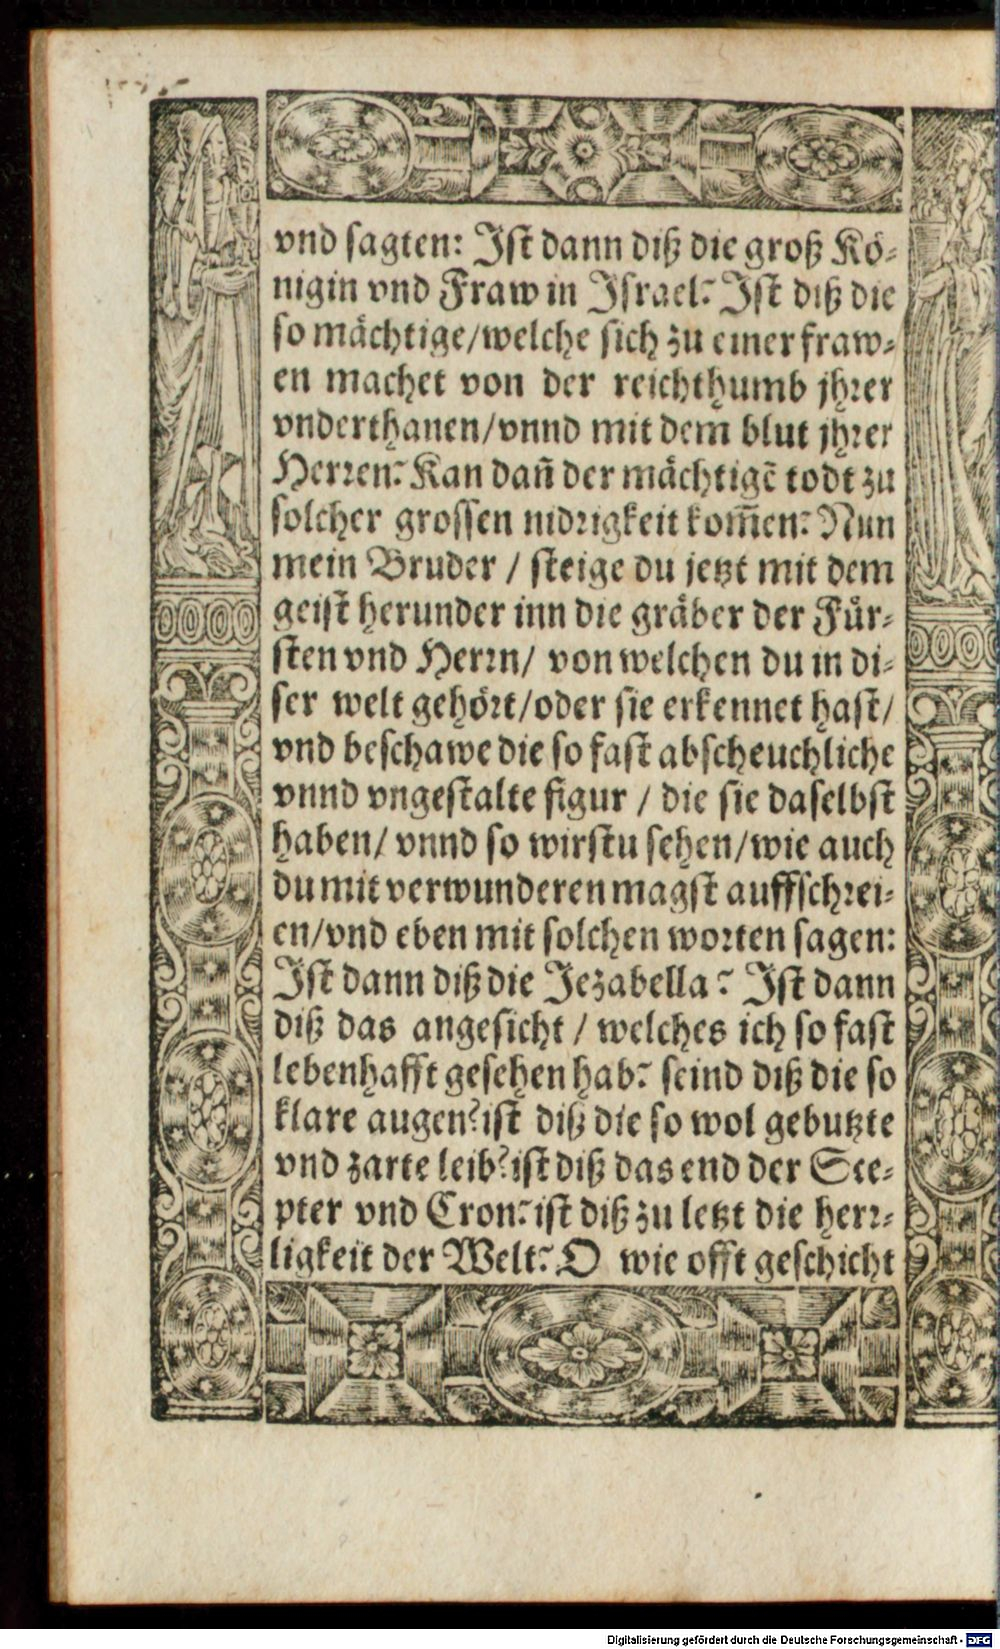 vnd ſagten: Iſt dann diß die groß Kö⸗
nigin vnd Fraw in Iſrael? Iſt diß die
ſo mächtige/welche ſich zu einer fraw⸗
en machet von der reichthumb jhrer
vnderthanen/vnnd mit dem blut jhrer
Herren? Kan dañ der mächtigẽ todt zu
ſolcher groſſen nidrigkeit kom̃en? Nun
mein Bruder / ſteige du jetzt mit dem
geiſt herunder inn die gräber der Für⸗
ſten vnd Herrn/ von welchen du in di⸗
ſer welt gehört/oder ſie erkennet haſt/
vnd beſchawe die ſo faſt abſcheuchliche
vnnd vngeſtalte figur / die ſie daſelbſt
haben/ vnnd ſo wirſtu ſehen/wie auch
du mit verwunderen magſt auffſchrei⸗
en/vnd eben mit ſolchen worten ſagen:
Iſt dann diß die Jezabella? Iſt dann
diß das angeſicht / welches ich ſo faſt
lebenhafft geſehen hab? ſeind diß die ſo
klare augen? iſt diß die ſo wol gebutzte
vnd zarte leib? iſt diß das end der Sce⸗
pter vnd Cron? iſt diß zu letzt die herr⸗
ligkeit der Welt? O wie offt geſchicht
Digitalisierung gefördert durch die Deutsche Forschungsgemeinschaft - DFG